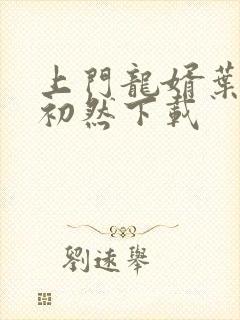 上門龍婿葉
初然下載
劉遠舉